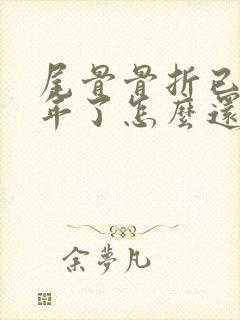 尾骨骨折已
年了怎麼還
余夢凡